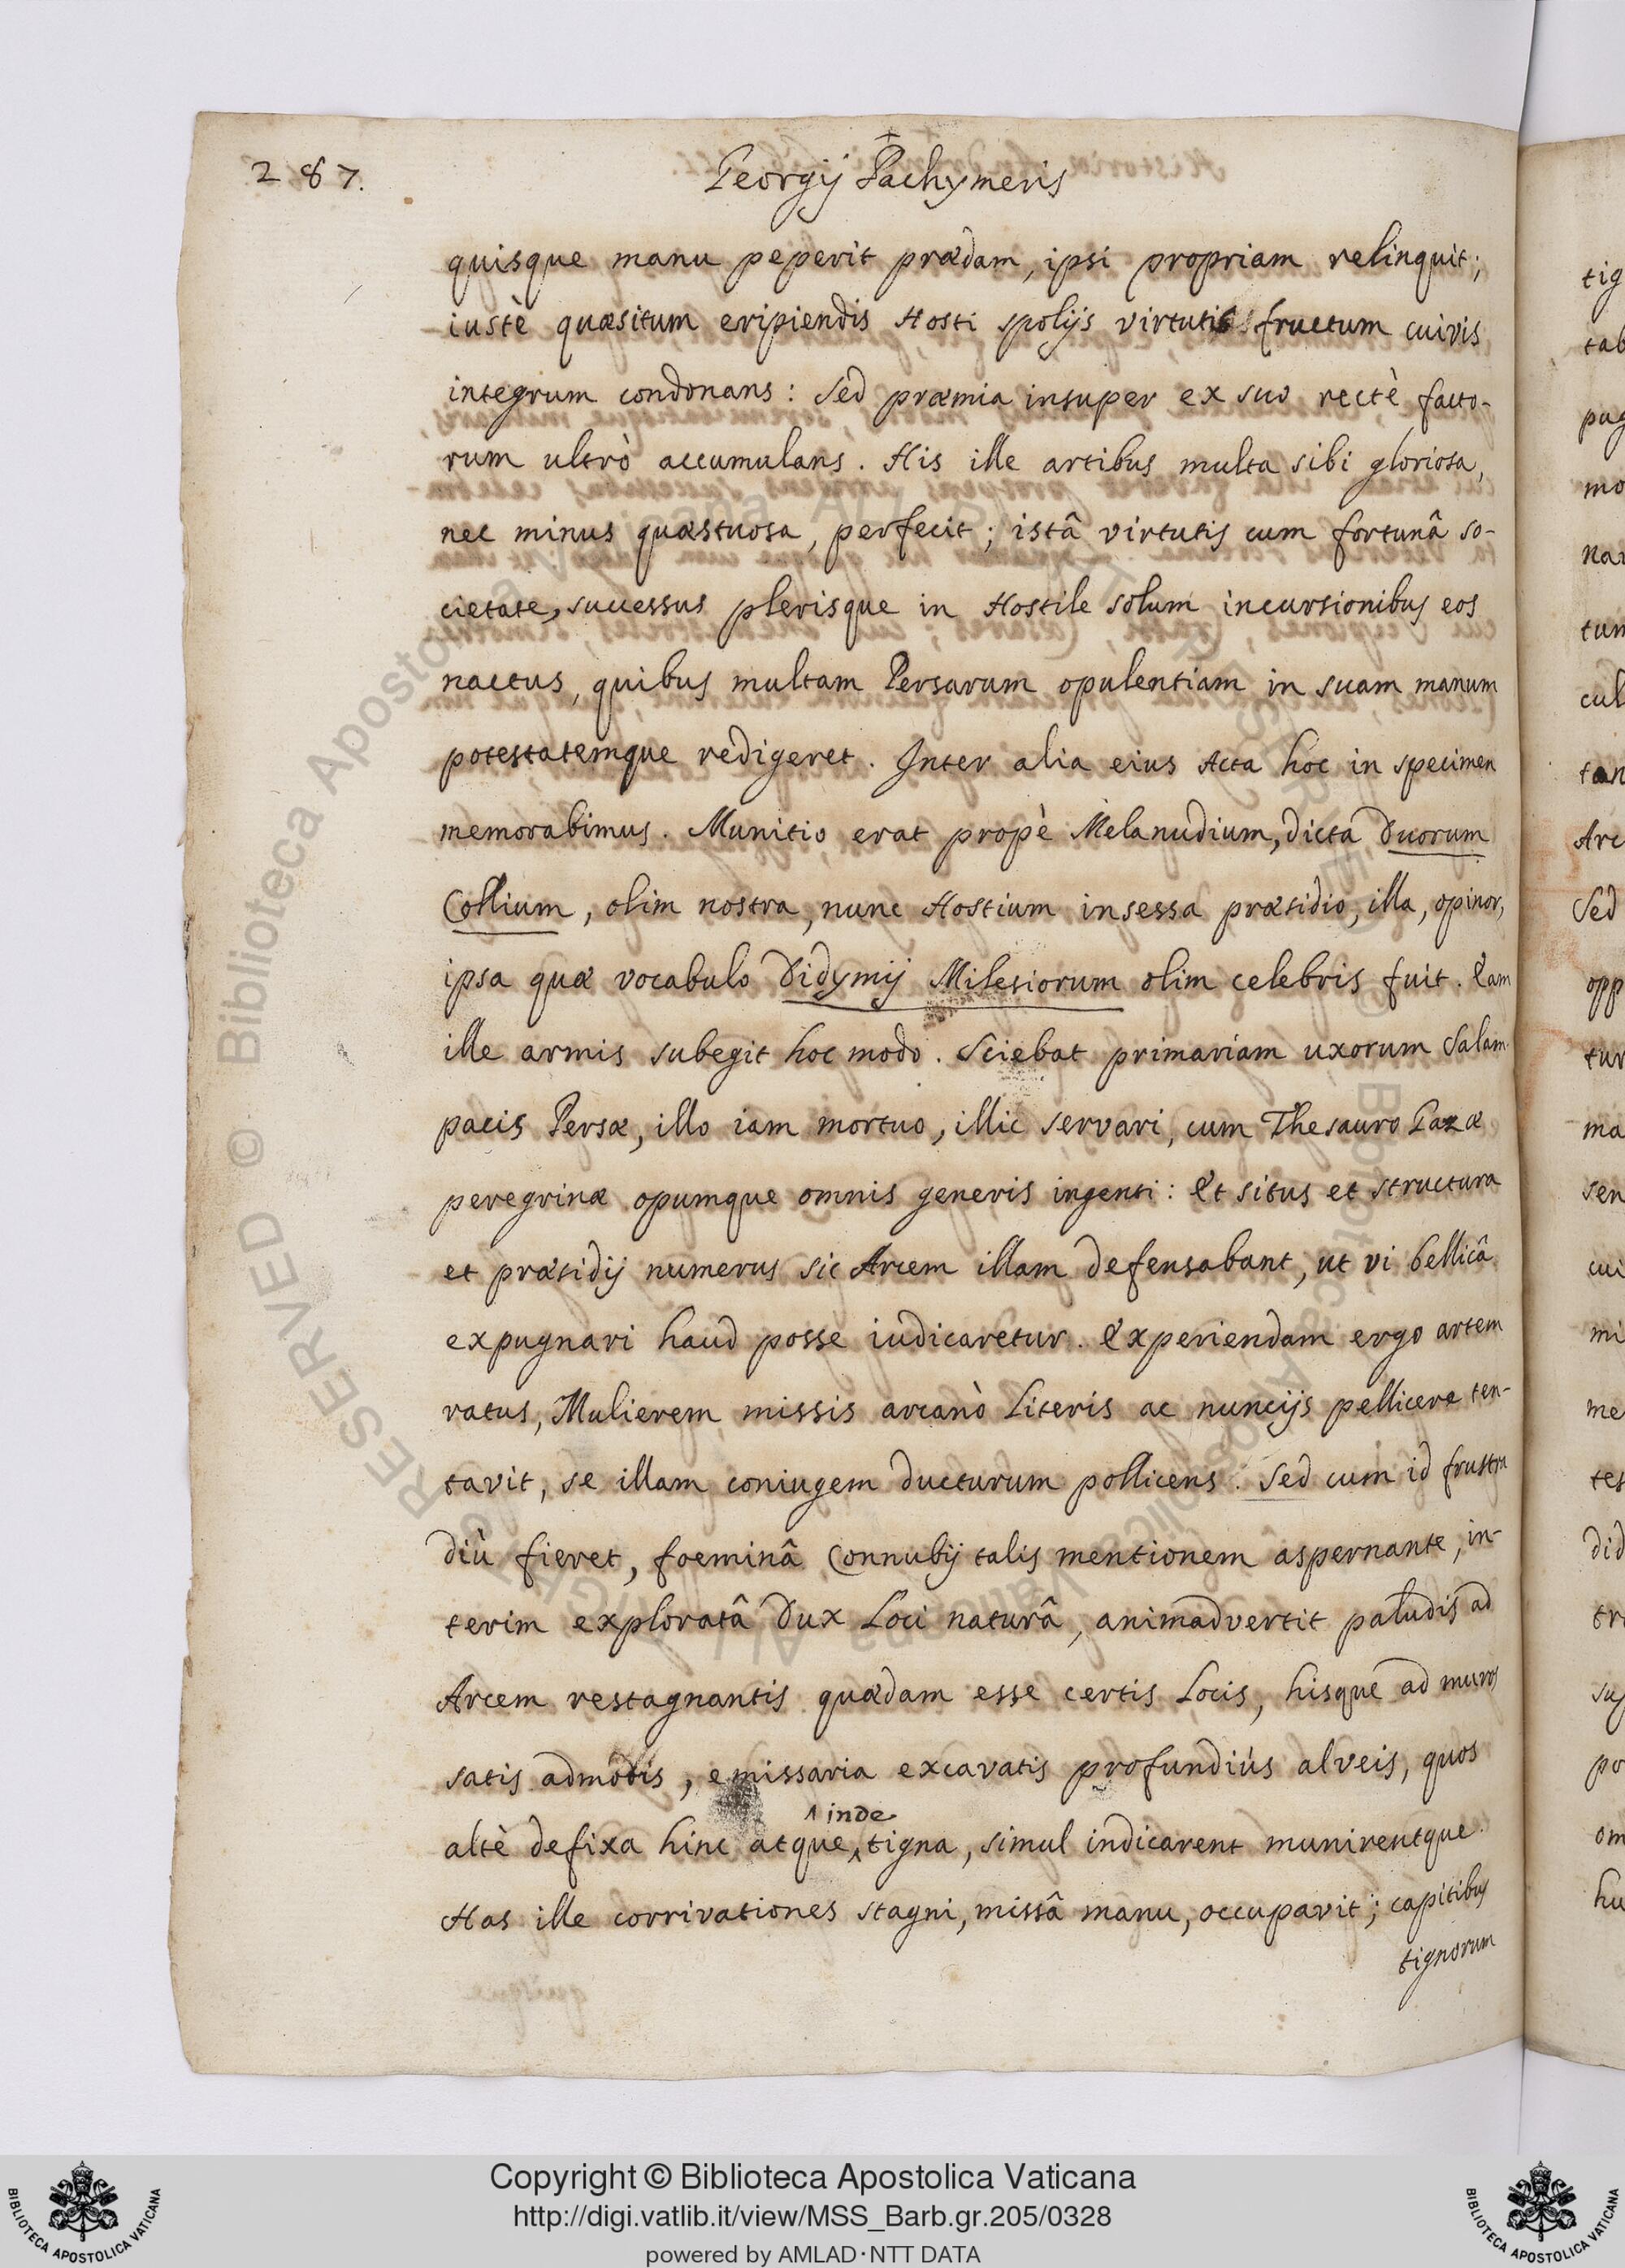 287.
Georgij Pachymeris
quisque manu peperit prædam, ipsi propriam relinquit;
iustè quæsitum eripiendis Hosti spolijs virtutis fructum cuivis
integrum condonans: Sed præmia insuper ex suo rectè facto-
rum ultrò accumulans. His ille artibus multa sibi gloriosa,
nec minus quæstuosa, perfecit; istâ virtutis cum fortunâ so-
cietate, successus plerisque in Hostile solum incursionibus eos
nactus, quibus multam Persarum opulentiam in suam manum
potestatemque redigeret. Inter alia eius Acta hoc in specimen
memorabimus. Munitio erat propè Melanudium, dicta Duorum
Collium, olim nostra, nunc Hostium insessa præsidio, illa, opinor,
ipsa quæ vocabulo Didymij Milesiorum olim celebris fuit. Eam
ille armis subegit hoc modo. Sciebat primariam uxorum Salam-
pacis Persæ, illo iam mortuo, illic servari, cum Thesauro Gazæ
peregrinæ opumque omnis generis ingenti: Et situs et structura
et præsidij numerus sic Arcem illam defensabant, ut vi bellicâ
expugnari haud posse iudicaretur. Experiendam ergo artem
ratus, Mulierem missis arcanò Literis ac nuncijs pellicere ten-
tavit, se illam coniugem ducturum pollicens. Sed cum id frustra
diù fieret, foeminâ Connubij talis mentionem aspernante, in-
terim exploratâ Dux Loci naturâ, animadvertit paludis ad
Arcem restagnantis quædam esse certis Locis, hisque ad muros
satis admotis, emissaria excavatis profundiùs alveis, quos
inde
altè defixa hinc atque tigna, simul indicarent munirentque.
Has ille corrivationes stagni, missâ manu, occupavit; capitibus
tignorum
tig
tab
pug
mo
nar
tum
cul
tan
Arc
Sed
opp
tur
ma
sen
cui
mi
me
tes
did
tr
su
po
om
hu
Copyright © Biblioteca Apostolica Vaticana
http://digi.vatlib.it/view/MSS_Barb.gr.205/0328
powered by AMLAD·NTT DATA
BIBLIOTECA APOSTOLICA VATICANA
BIBLIOTECA APOSTOLICA VATICANA